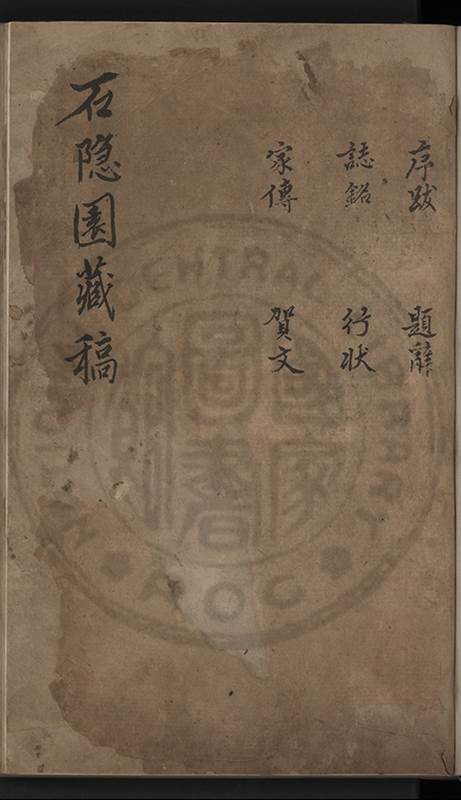 序跋 題辭
誌銘 行状
家傳 賀文
石隐園藏稿
國家圖書館
NATIONAL CENTRAL LIBRARY
ROC